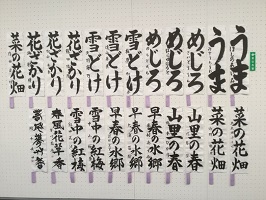 うま
うま
めじろ
めじろ
雪どけ
雪どけ
雪どけ
花ざかり
花ざかり
花ざかり
菜の花畑
菜の花畑
菜の花畑
山里の春
山里の春
早春の水郷
早春の水郷
早春の水郷
雪中の紅梅
雪中の紅梅
春風花草香